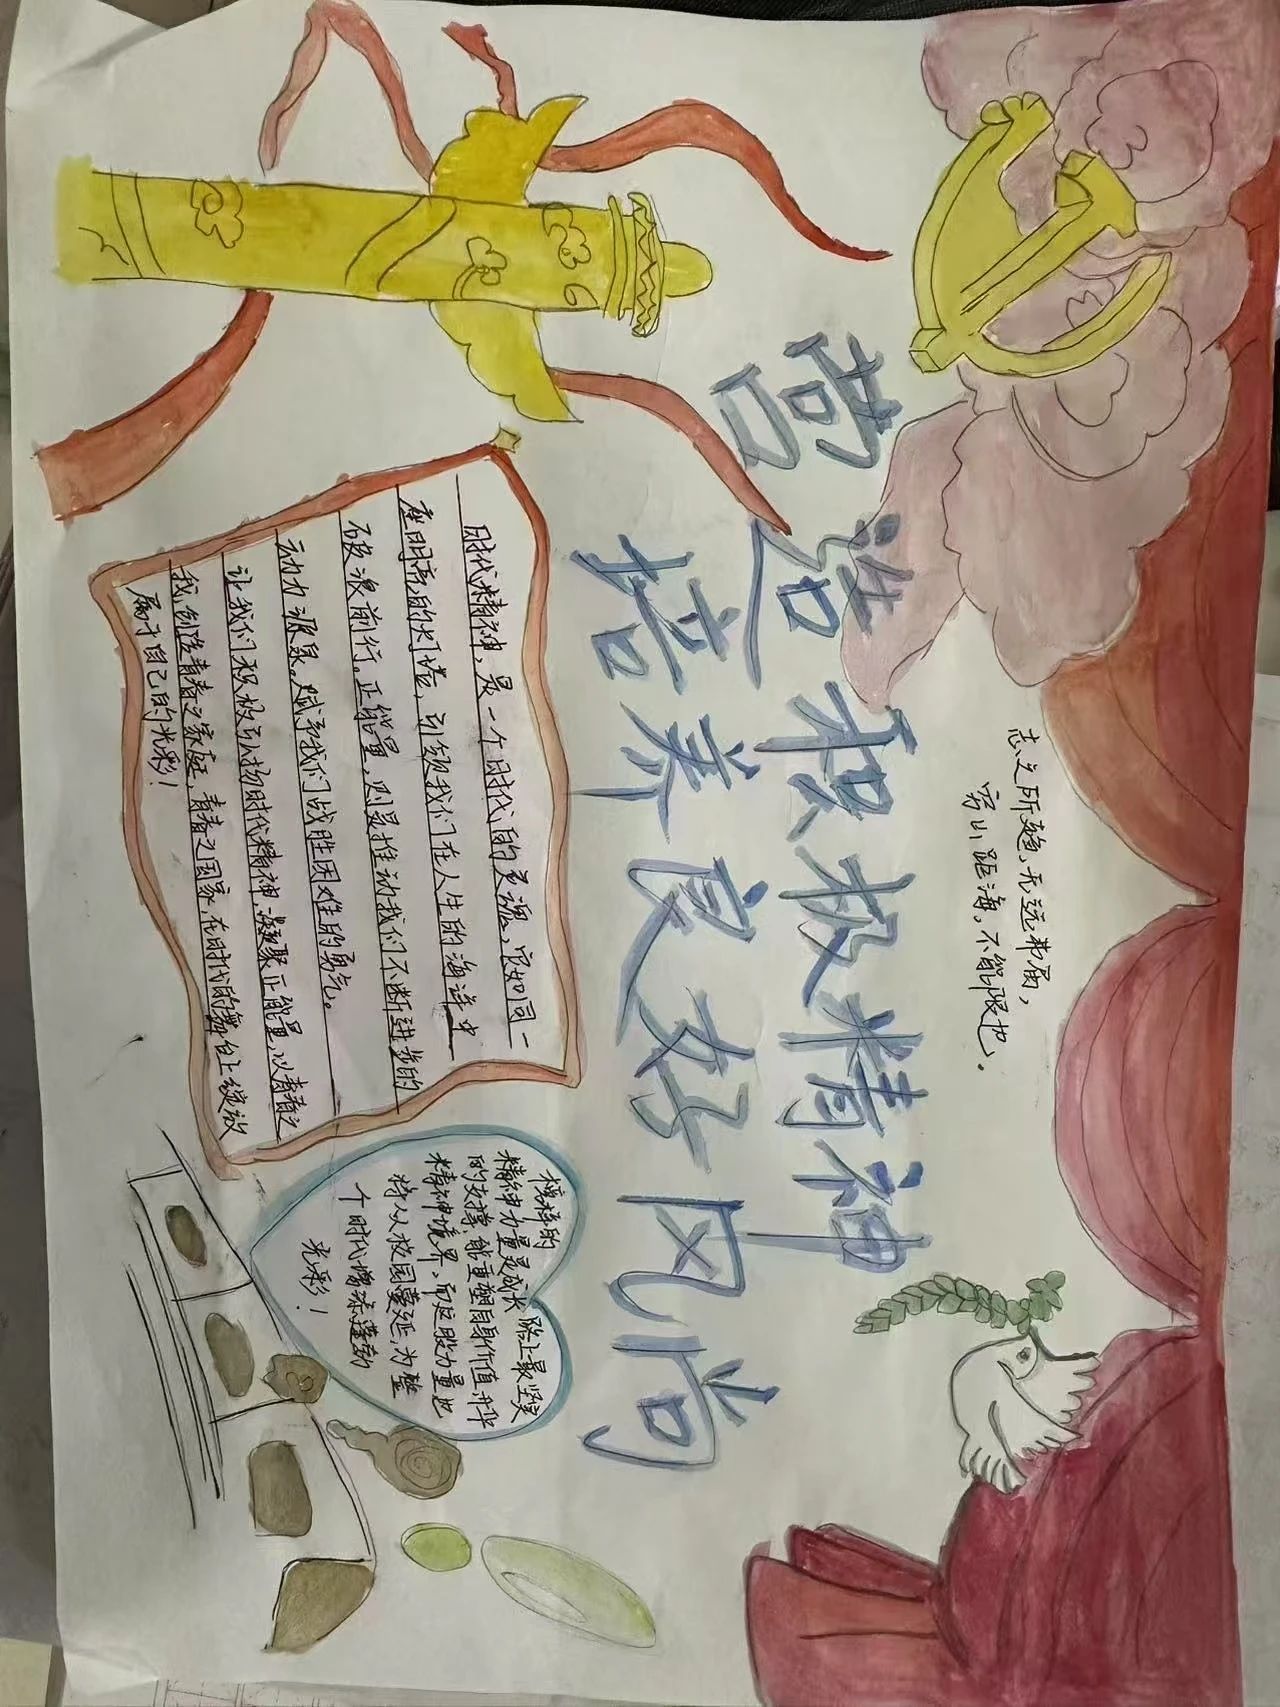 志之所趋,无远弗届,
穷山距海,不能限也.
营造积极精神
培养良好风尚
时代精神,是一个时代的灵魂,它如同一
座明亮的灯塔,引领我们在人生的海洋中
破浪前行。正能量,则是推动我们不断进步的
动力源泉。赋予我们战胜困难的勇气。
让我们积极弘扬时代精神,凝聚正能量,以青春之
我,创造青春之家庭,青春之国家,在时代的舞台上绽放
属于自己的光彩!
榜样的
精神力量是成长路上最坚实
的支撑,能重塑自身价值,升华
精神境界,而这股力量也
将从校园蔓延,为整
个时代增添蓬勃
光彩!